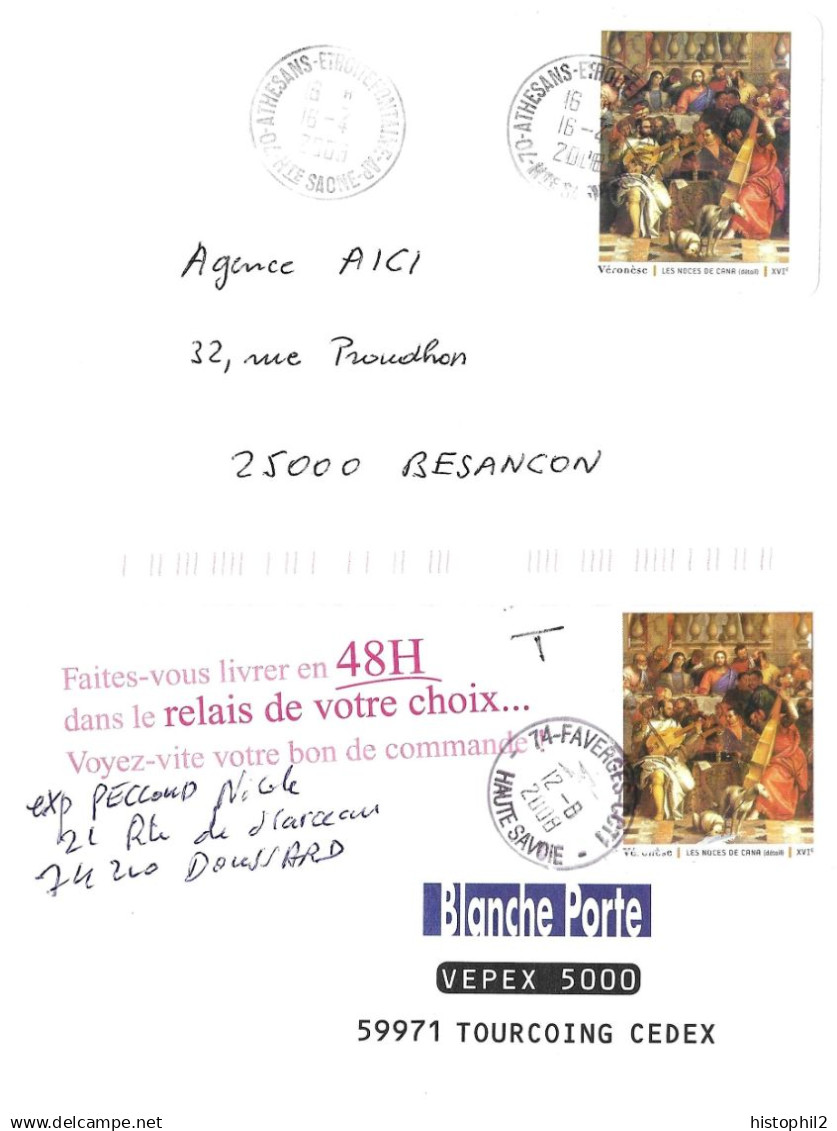 70-ATHESANS-ETROITEFONTAINE-AP-HTE SAONE
16 H
16-4
2008
70-ATHESANS-ETROITE
16
16-4
2008
Véronèse | LES NOCES DE CANA (détail) | XVIe
Agence AICI
32, rue Proudhon
25000 BESANCON
T
Faites-vous livrer en 48H
dans le relais de votre choix...
Voyez-vite votre bon de commande !
74-FAVERGES
12-8
2008
HAUTE SAVOIE
exp PECCOUD Nicole
21 Rte de Marceau
74210 DOUSSARD
Véronèse | LES NOCES DE CANA (détail) | XVIe
Blanche Porte
VEPEX 5000
59971 TOURCOING CEDEX
histophil2